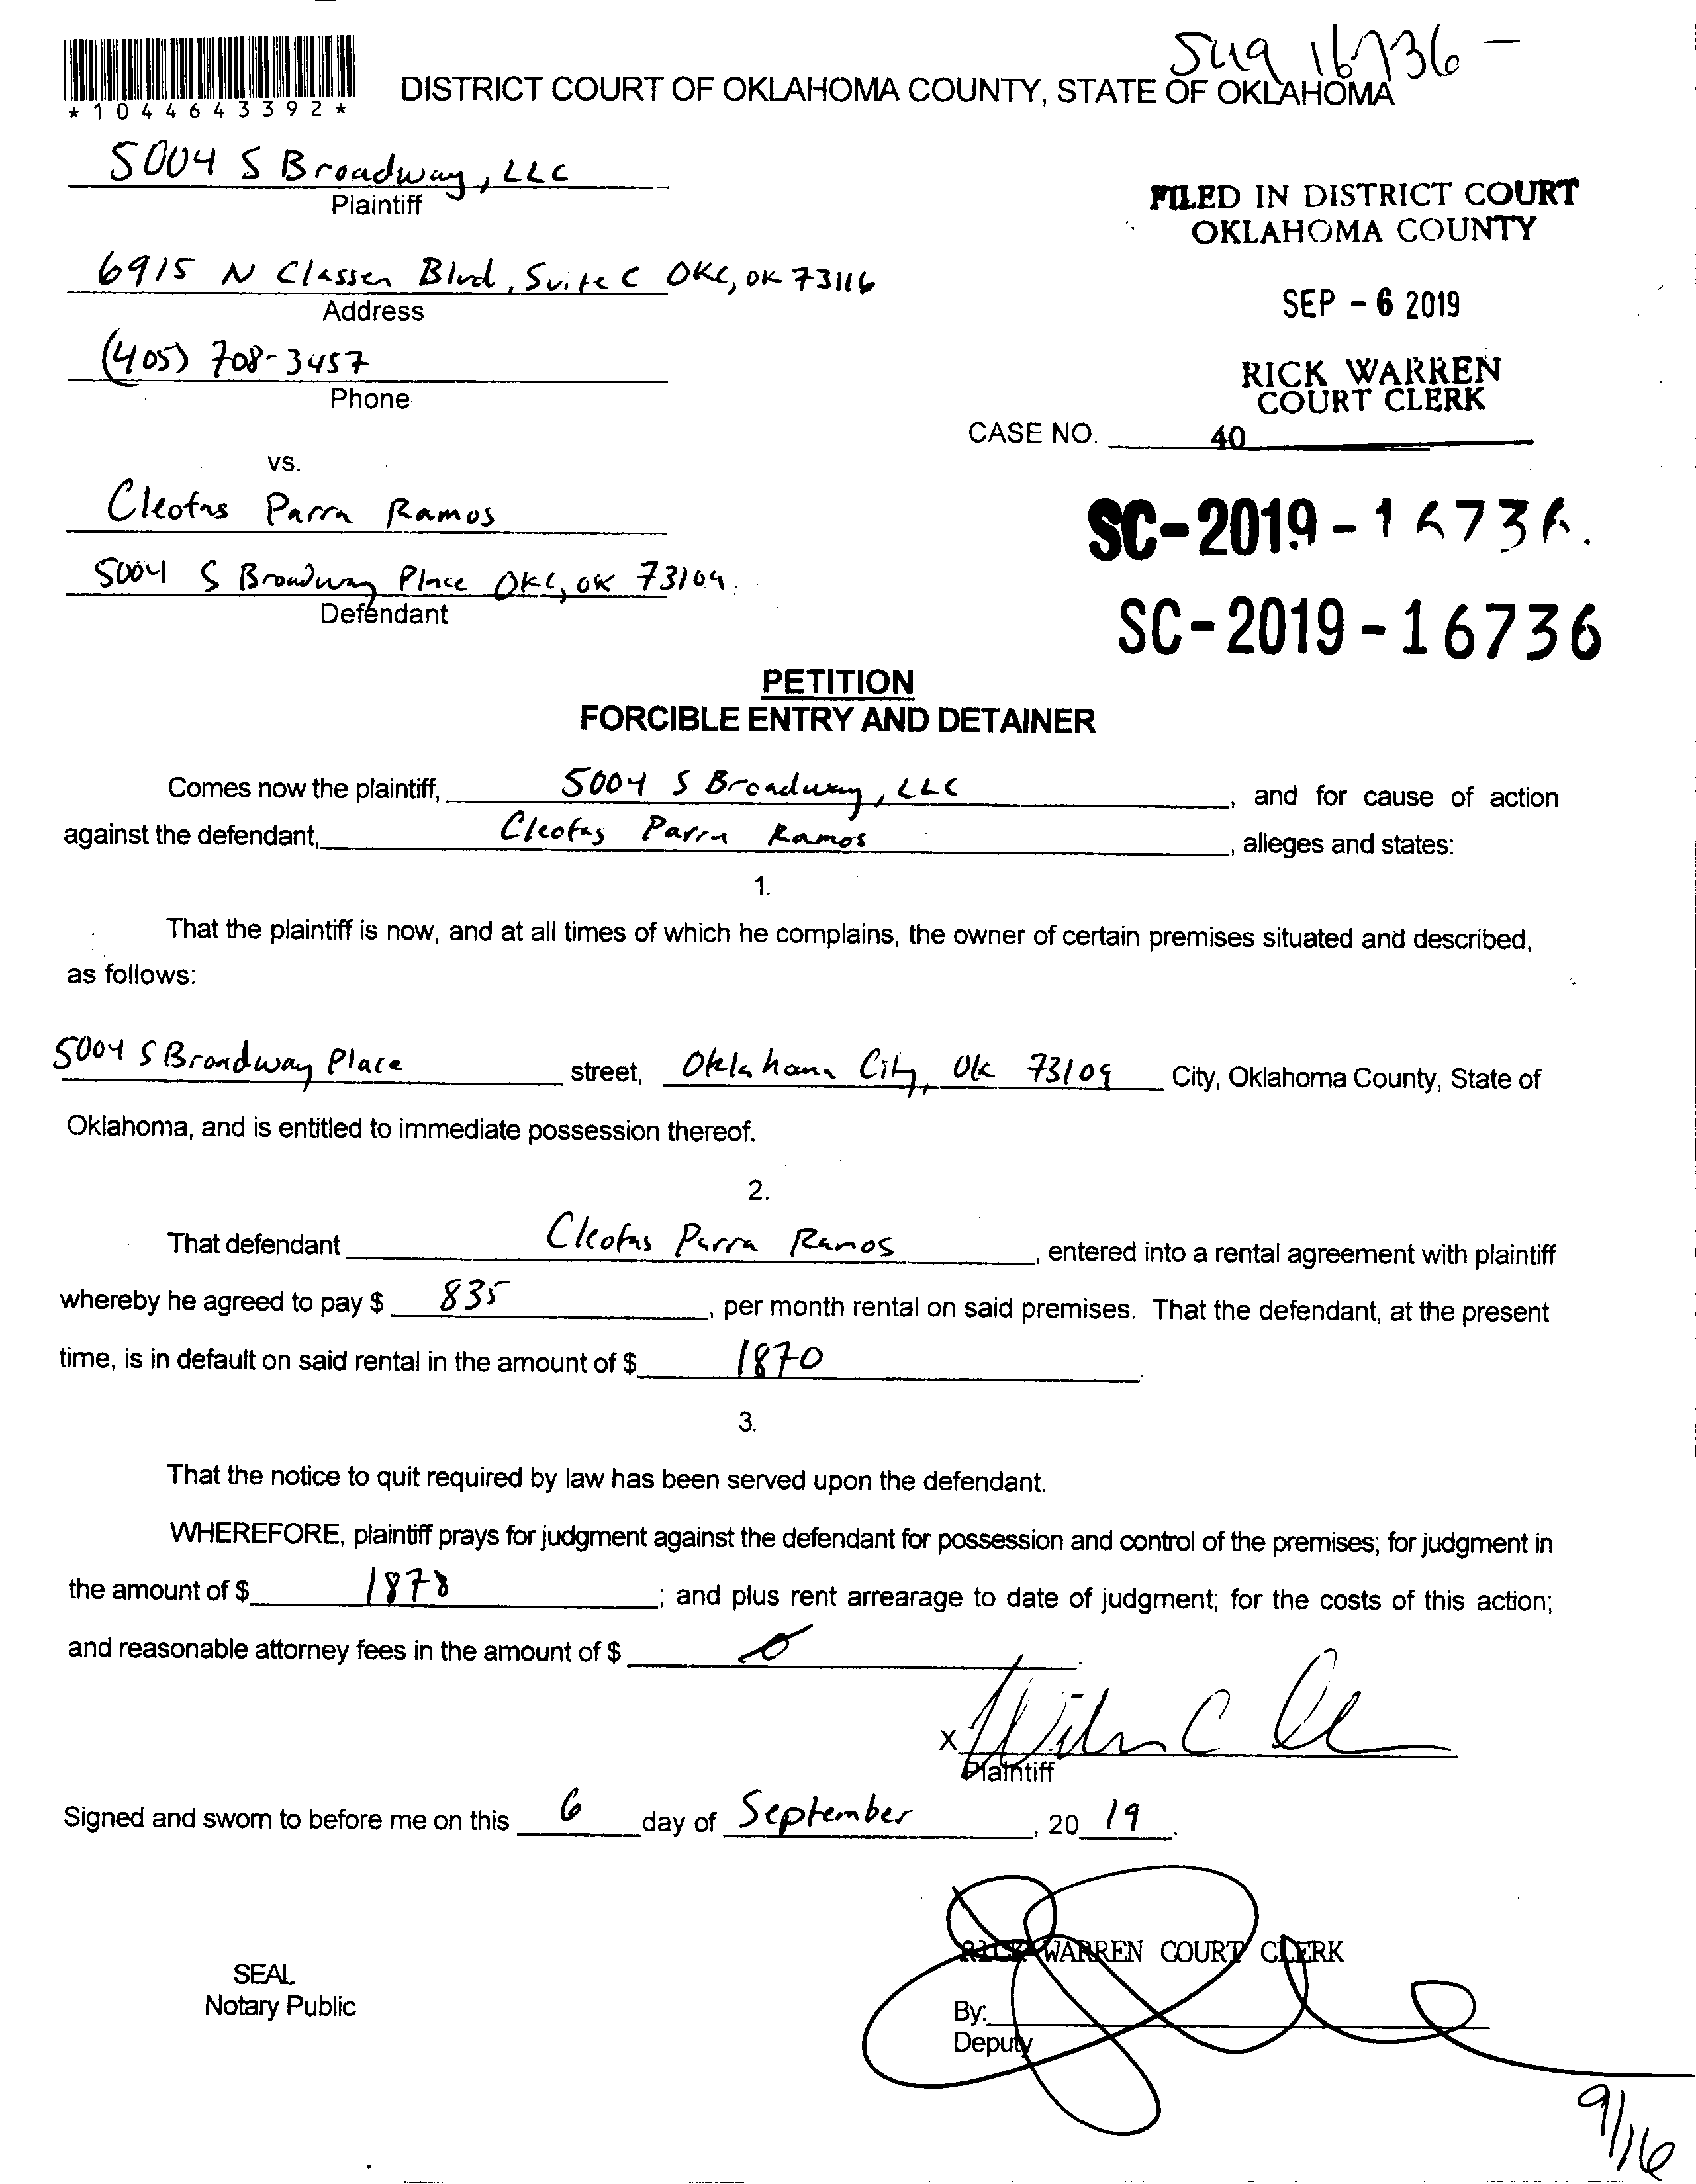 Sug 16736 -
*1044643392*
DISTRICT COURT OF OKLAHOMA COUNTY, STATE OF OKLAHOMA
5004 S Broadway, LLC
Plaintiff
FILED IN DISTRICT COURT
OKLAHOMA COUNTY
6915 N Classen Blvd, Suite C OKC, OK 73116
Address
SEP - 6 2019
(405) 708-3457
Phone
RICK WARREN
COURT CLERK
CASE NO. 40
vs.
Cleofas Parra Ramos
SC-2019-16736.
5004 S Broadway Place OKC, OK 73109
Defendant
SC-2019-16736
PETITION
FORCIBLE ENTRY AND DETAINER
Comes now the plaintiff, 5004 S Broadway, LLC, and for cause of action
against the defendant, Cleofas Parra Ramos, alleges and states:
1.
That the plaintiff is now, and at all times of which he complains, the owner of certain premises situated and described,
as follows:
5004 S Broadway Place street, Oklahoma City, OK 73109 City, Oklahoma County, State of
Oklahoma, and is entitled to immediate possession thereof.
2.
That defendant Cleofas Parra Ramos, entered into a rental agreement with plaintiff
whereby he agreed to pay $ 835, per month rental on said premises. That the defendant, at the present
time, is in default on said rental in the amount of $ 1870.
3.
That the notice to quit required by law has been served upon the defendant.
WHEREFORE, plaintiff prays for judgment against the defendant for possession and control of the premises; for judgment in
the amount of $ ; and plus rent arrearage to date of judgment; for the costs of this action;
and reasonable attorney fees in the amount of $ 0.
X
Plaintiff
Signed and sworn to before me on this 6 day of September, 20 19.
RICK WARREN COURT CLERK
SEAL
Notary Public
By:
Deputy
9/16